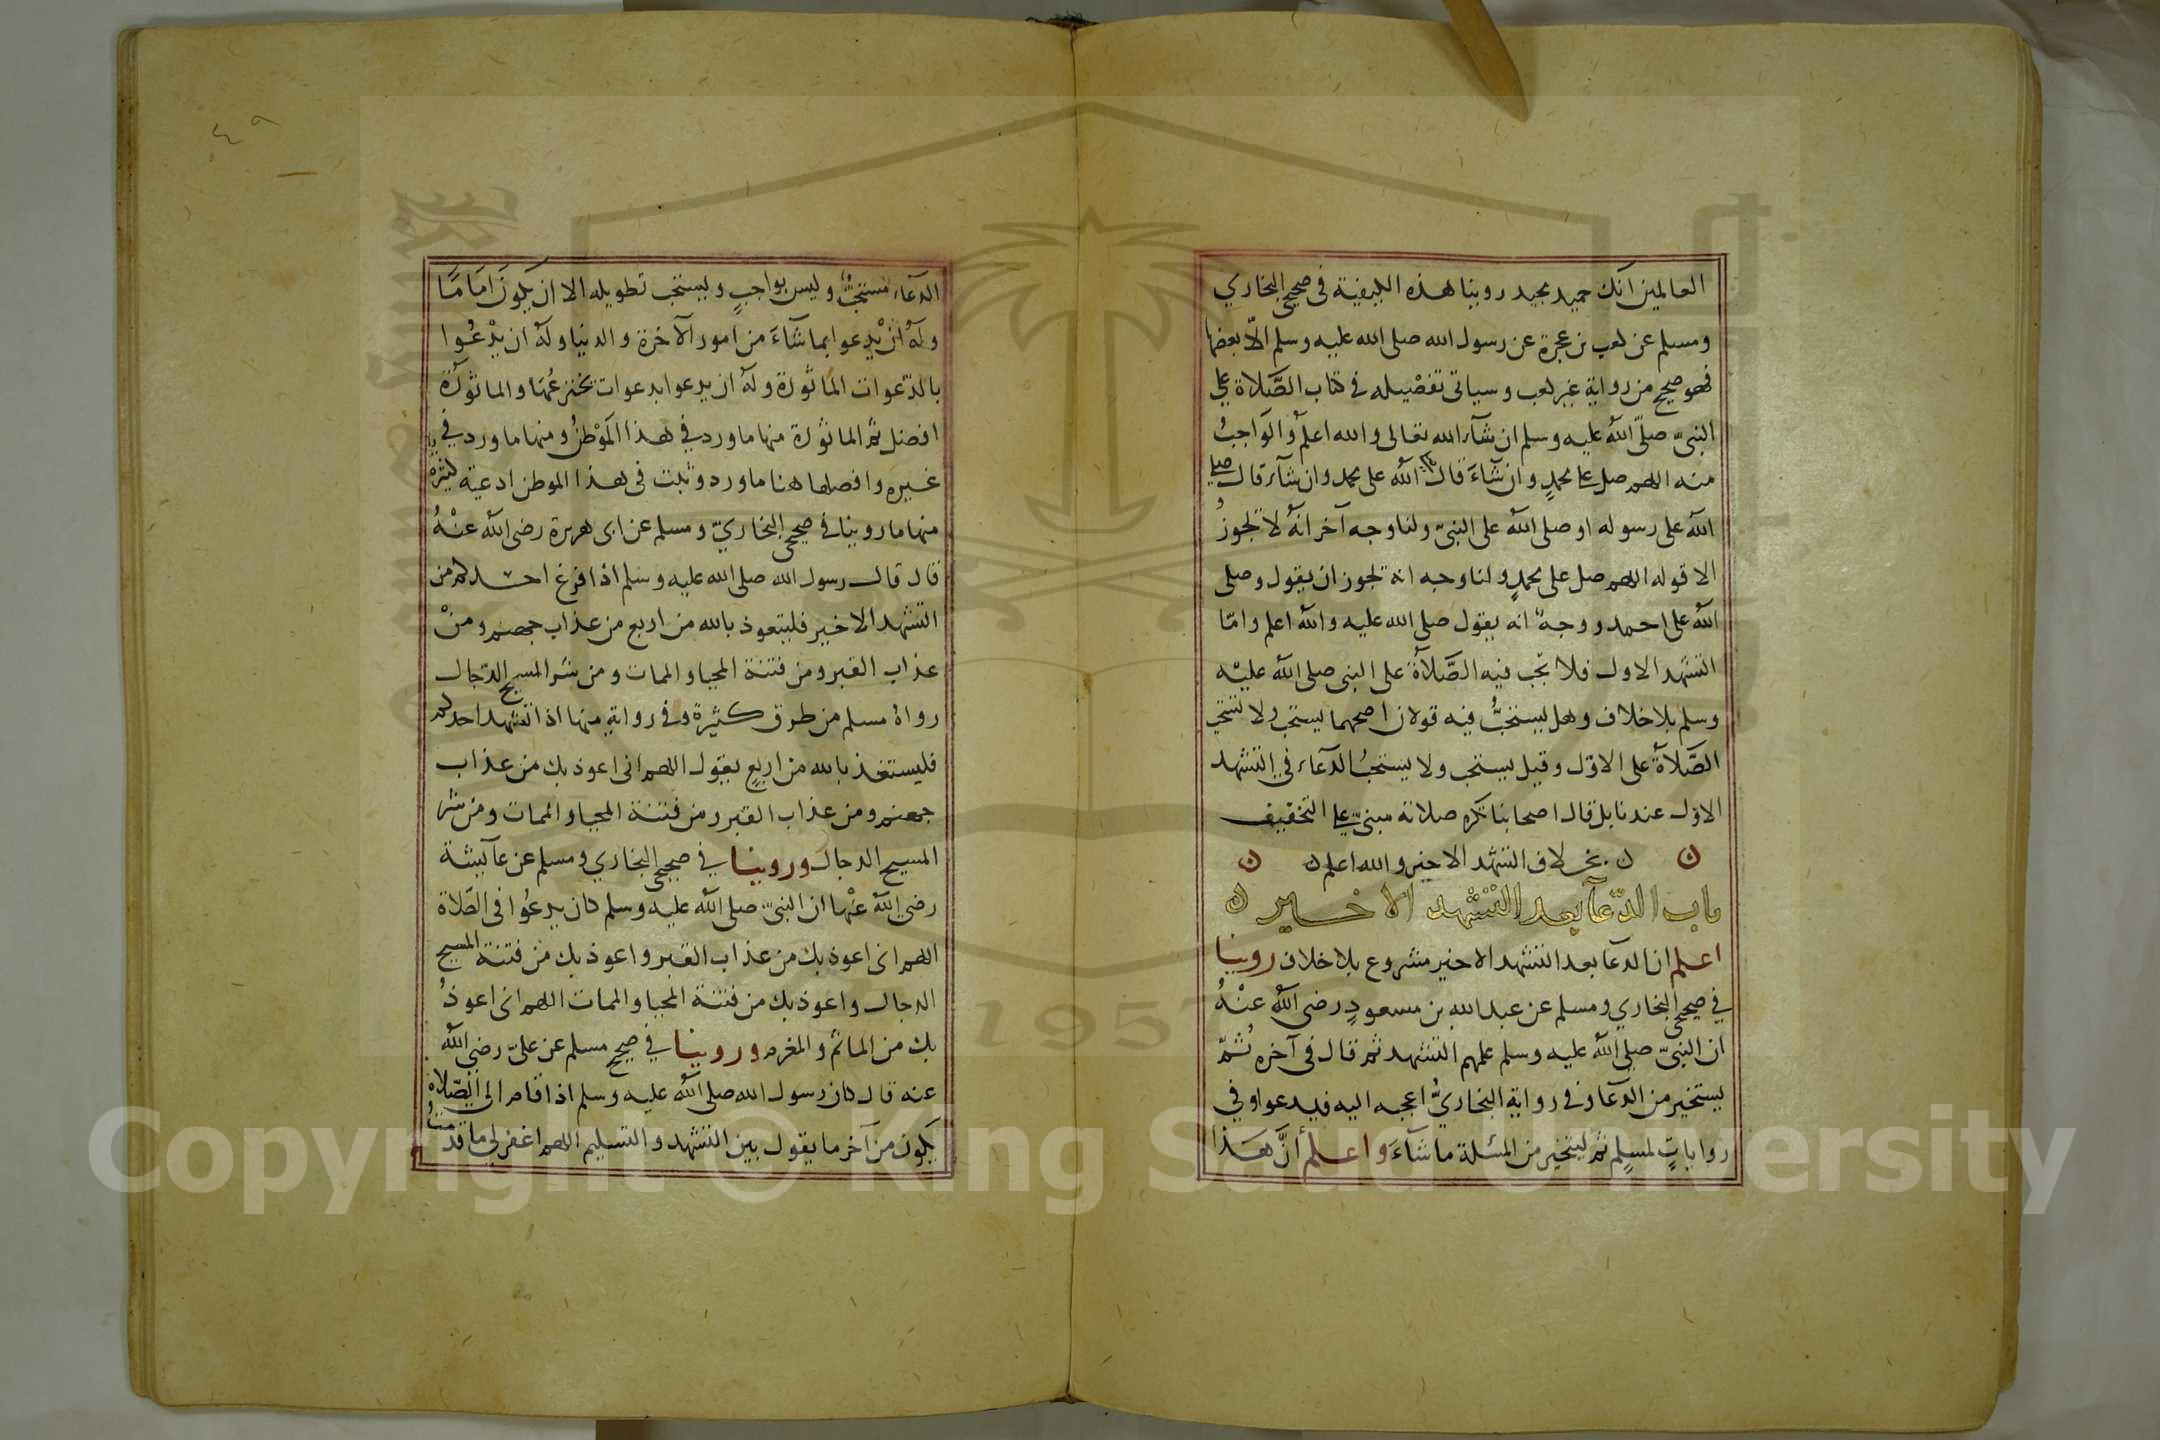 العالمين انك حميد مجيد روينا هذه الكيفية في صحيح البخاري
ومسلم عن كعب بن عجرة عن رسول الله صلى الله عليه وسلم الّا بعضها
فهو صحيح من رواية غير كعب وسياتي تفصيله في كتاب الصَّلاة على
النبيّ صلّى اللهُ عليه وسلم ان شآء الله تعالى والله اعلم والوَاجبُ
منه اللهم صل على محمدٍ وان شآءَ قال صلى اللهُ على محمد وان شآء قال صلى
اللهُ على رسوله او صلى اللهُ على النبيّ ولنا وجه آخر انهُ لا يجوزُ
الا قوله اللهم صل على محمدٍ ولنا وجه انه يجوز ان يقول وصلى
اللهُ على احمد ووجهٌ انه يقول صلى الله عليه واللهُ اعلم وامّا
التشهد الاول فلا تجب فيه الصَّلاةُ على النبي صلى اللهُ عليْه
وسلم بلا خلاف وهل يستحبُّ فيه قولان اصحهما يستحب ولا تستحب
الصَّلاةُ على الاوّل وقيل يستحب ولا يستحبُ الدعآء في التشهد
الاوّل عندنا بل قال اصحابنا تكره صلاته مبنىّ على التخفيف
ن ن بخلاف التشهد الاخير والله اعلم ن ن
باب الدّعآ بعد التشهد الاخير ن
اعلم ان الدعآ بعد التشهد الاخير مشروع بلا خلاف روينا
في صحيحي البخاري ومسلم عن عبد الله بن مسعودٍ رضي اللهُ عنْهُ
ان النبيّ صلى اللهُ عليه وسلم علمهم التشهد ثم قال في آخره ثُمّ
يستخير من الدعآء وفي رواية البخاريُّ اعجبه اليه فيدعوا وفي
رواياتٍ لمسلمٍ ثم ليتخير من المسئلة ما شآءَ واعلم أنَّ هَذا
٤٩
الدعآء مستحبٌّ وليس بواجبٍ ويستحب تطويله الا ان يكونَ امَامًا
ولهُ أنْ يْدعوا بما شآءَ من امور الآخرة والدنيا ولهُ ان يدْعُوا
بالدّعوات الماثورة ولهُ ان يدعوا بدعوات يخترعُهَا والماثورة
افضل ثم الماثورة منها ما ورد في هذا المَوْطنُ ومنها ما ورد في
غيره وافضلها هنا ما ورد وثبت في هذا الموطن ادعية كثيرة
منها ما روينا في صحيحي البخاريّ ومسلم عن ابي هريرة رضي اللهُ عنْهُ
قال قال رسول الله صلى الله عليه وسلم اذا فرغ احدكم من
التشهد الاخير فليتعوذ بالله من اربع من عذاب جهنم ومنْ
عذاب القبر ومن فتنة المحيا والممات ومن شر المسيح الدّجال
رواهُ مسلم من طرق كثيرة وفي روايةٍ منها اذا تشهد احدكم
فليستعذ بالله من اربعٍ يقول اللهم اني اعوذ بك من عذاب
جهنم ومن عذاب القبر ومن فتنة المحيا والممات ومن شر
المسيح الدجال وروينا في صحيحي البخاري ومسلم عن عآيشة
رضي اللهُ عنْها ان النبيّ صلى اللهُ عليه وسلم كان يدعُوا في الصَّلاة
اللهم اني اعوذ بك من عذاب القبر واعوذ بك من فتنة المسيح
الدجال واعوذ بك من فتنة المحيا والممات اللهم اني اعوذُ
بك من الماثم والمغرم وروينا في صحيح مسلم عن عليّ رضي اللهُ
عنه قال كان رسول الله صلى اللهُ عليه وسلم اذا قام الى الصَّلاة
يكون من آخر ما يقول بين التشهد والتسليم اللهم اغفر لي ما قدمتُ
Copyright © King Saud University
1957